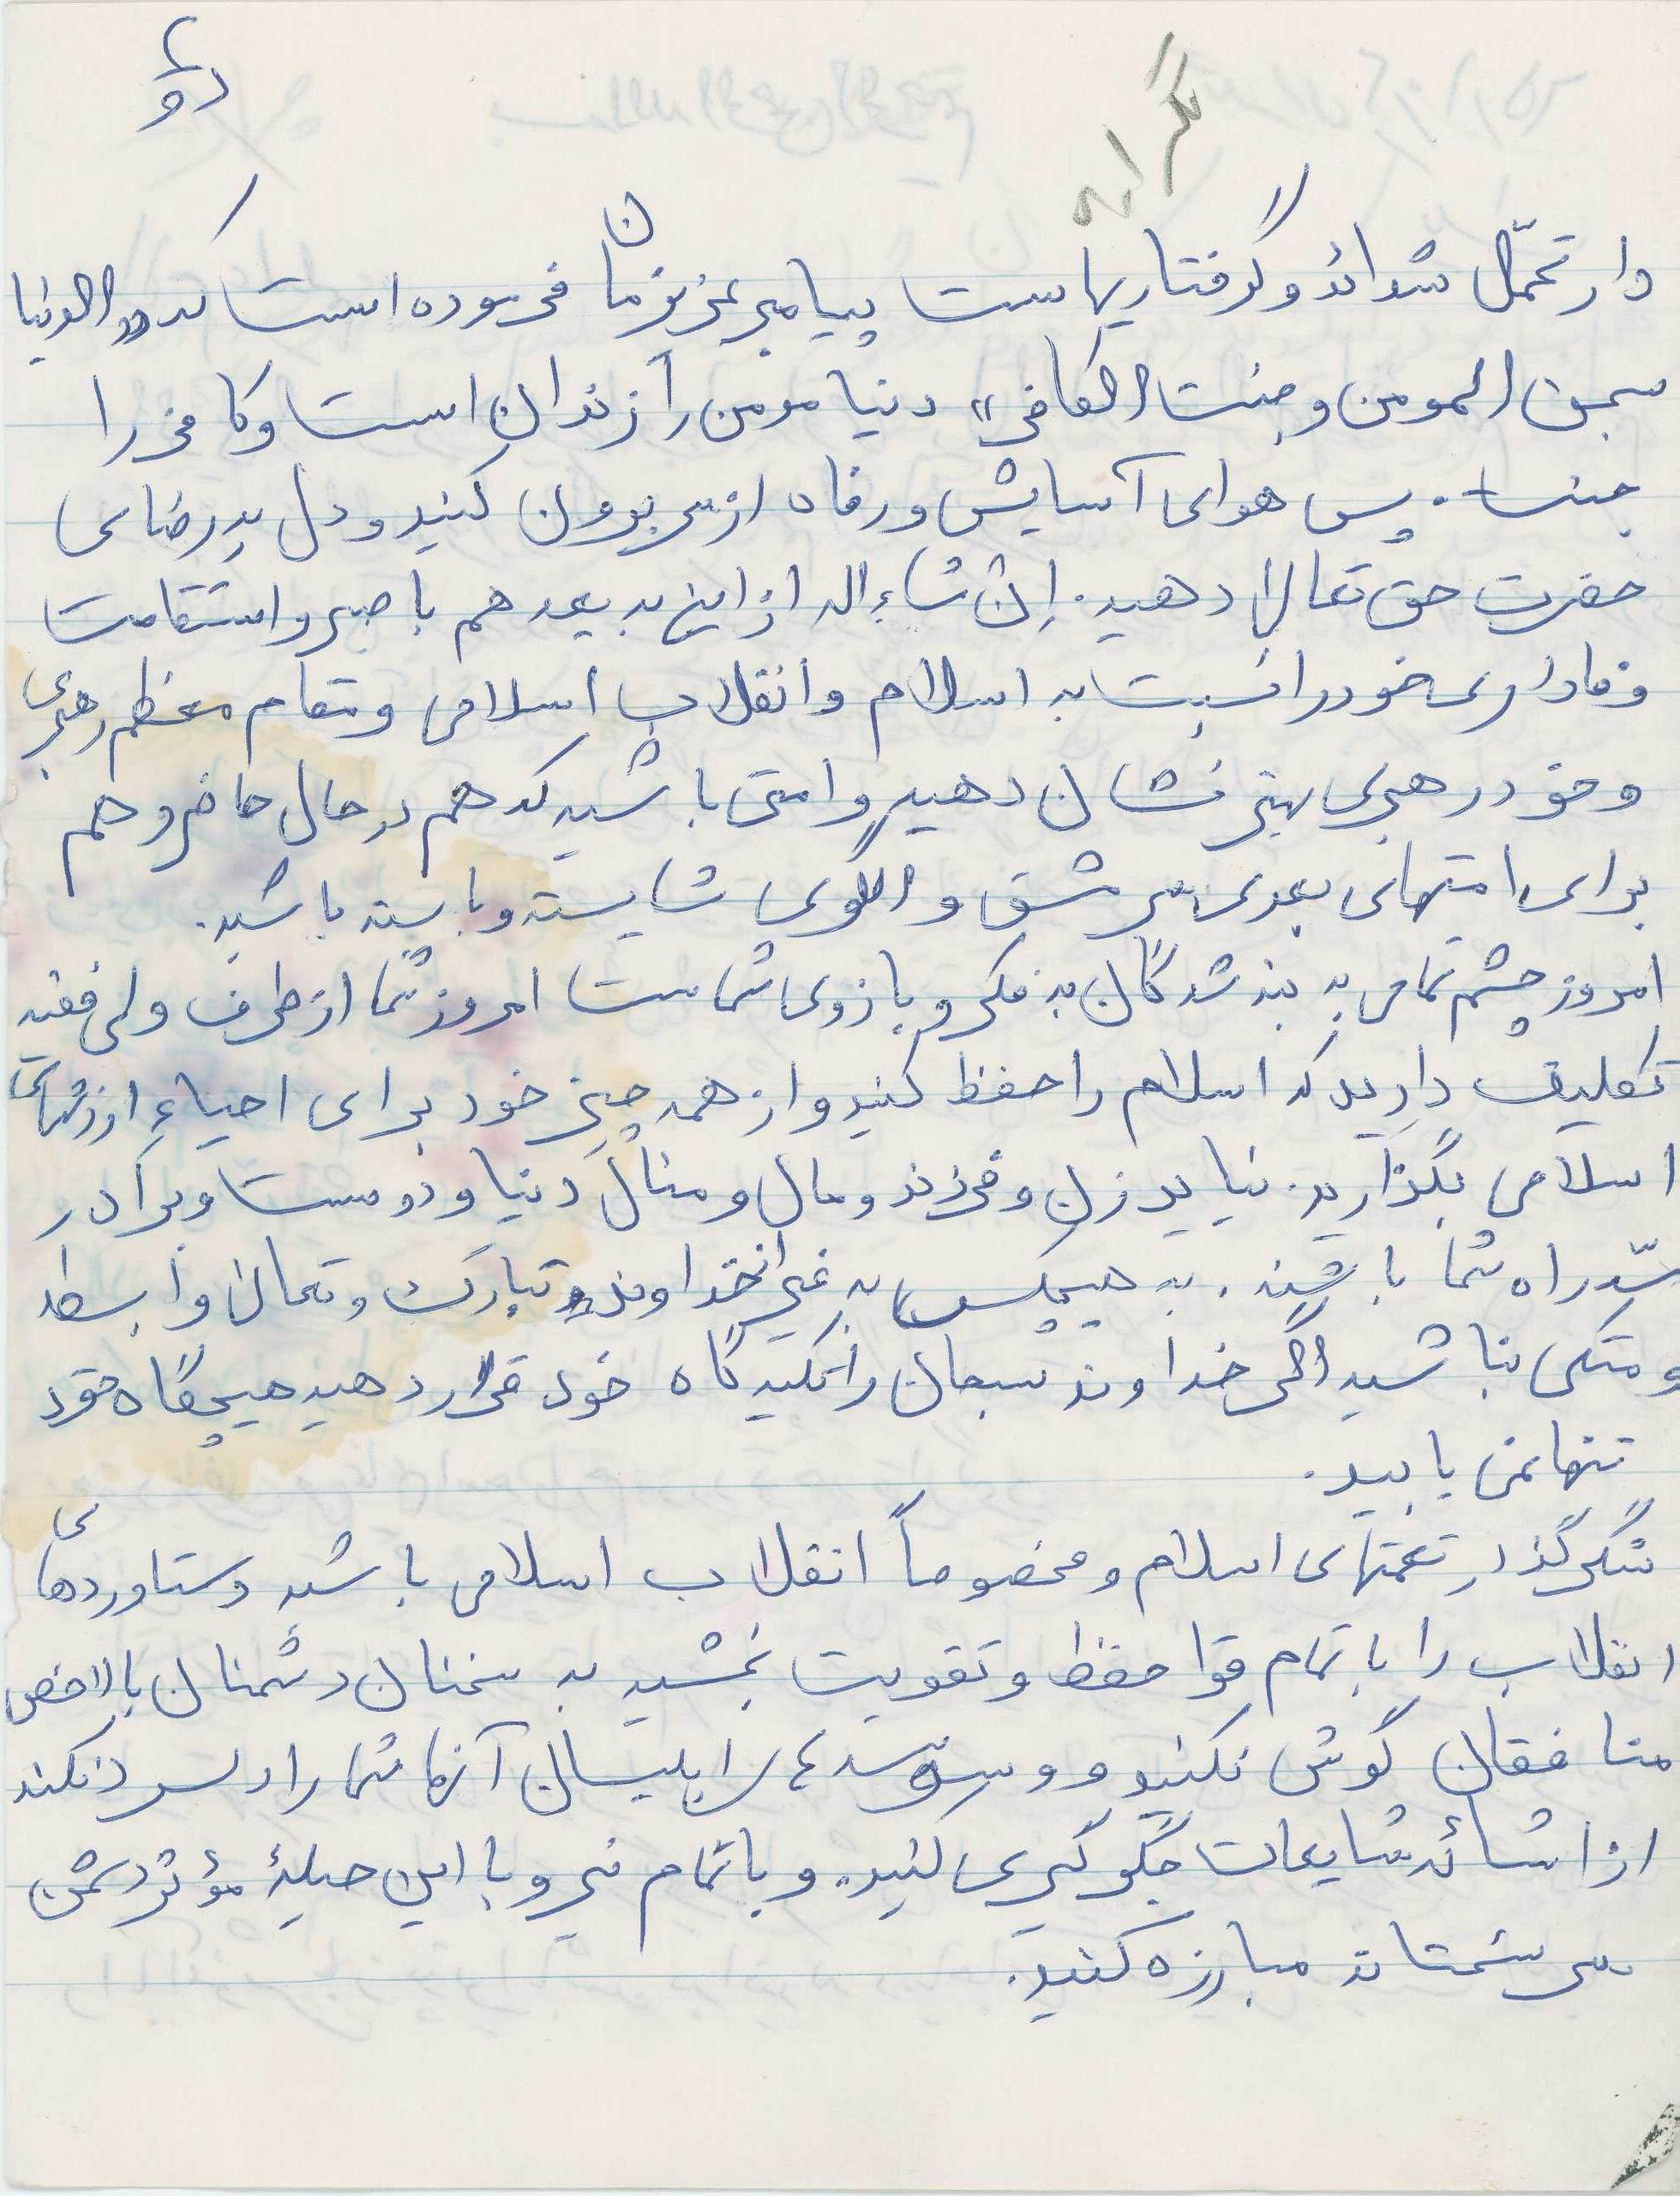 دار تحمّل شدائد و گرفتاریهاست پیامبر عزیزمان فرموده است که «الدنیا
سجن المومن و جنت الکافر» دنیا مومن را زندان است و کافر را
جنت. پس هوای آسایش و رفاه از سر برون کنید و دل به رضای
حضرت حق تعالی دهید. إن شاءاله از این به بعد هم با صبر و استقامت
وفاداری خود را نسبت به اسلام و انقلاب اسلامی و مقام معظم رهبری
و خود رهبری بهتر نشان دهید و امتی باشید که هم در حال حاضر و هم
برای امتهای بعدی سرمشق و الگوی شایسته و بایسته باشید.
امروز چشم تمامی به بند شدگان به فکر و بازوی شماست امروز شما از طرف ولی فقیه
تکلیف دارید که اسلام را حفظ کنید و از همه چیز خود برای احیاء ارزشهای
اسلامی بگذارید. نباید زن و فرزند و مال و منال دنیا و دوست و برادر
سدّ راه شما باشند. به هیچکس به غیر از خداوند تبارک و تعالی وابسطه
و متکی نباشید اگر خداوند سبحان را تکیه گاه خود قرار دهید هیچگاه خود
تنها نمی یابید.
شکرگذار نعمتهای اسلام و مخصوصاً انقلاب اسلامی باشید دستاوردهای
انقلاب را با تمام قوا حفظ و تقویت بخشید به سخنان دشمنان بالاخص
منافقان گوش نکنید و وسوسه ابلیسان آنها شما را دلسرد نکند
از اشائه شایعات جلوگیری کنید. و با تمام نیرو با این حیلهٔ مؤثر دشمن
سرسختانه مبارزه کنید.